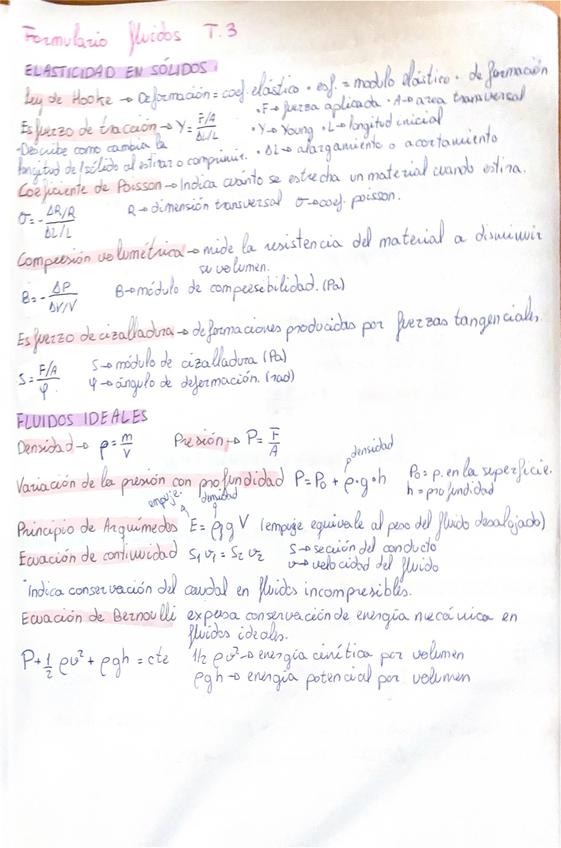 Formulario fluidos T.3
ELASTICIDAD EN SÓLIDOS:
Ley de Hooke → Deformación = coef. elástico · esf. = modulo elástico · deformación
Esfuerzo de tracción → Y = (F/A)/(ΔL/L) · F → fuerza aplicada · A → area transversal
· Y → Young · L → longitud inicial
· ΔL → alargamiento o acortamiento
- Describe como cambia la
longitud del sólido al estirar o comprimir.
Coeficiente de Poisson → Indica cuánto se estrecha un material cuando estira.
σ = -(ΔR/R)/(ΔL/L) R → dimensión transversal σ → coef. poisson.
Compresión volumétrica → mide la resistencia del material a disminuir
su volumen.
B = -ΔP/(ΔV/V) B → módulo de compresibilidad. (Pa)
Esfuerzo de cizalladura → deformaciones producidas por fuerzas tangenciales.
S = (F/A)/φ S → módulo de cizalladura (Pa)
φ → ángulo de deformación. (rad)
FLUIDOS IDEALES
Densidad → ρ = m/V Presión → P = F/A
densidad
Variación de la presión con profundidad P = P₀ + ρ·g·h P₀ = p. en la superficie.
h = profundidad
empuje densidad
Principio de Arquímedes E = ρf g V (empuje equivale al peso del fluido desalojado)
Ecuación de continuidad S₁v₁ = S₂v₂ S → sección del conducto
v → velocidad del fluido
*Indica conservación del caudal en fluidos incompresibles.
Ecuación de Bernoulli expresa conservación de energía mecánica en
fluidos ideales.
P + 1/2 ρv² + ρgh = cte 1/2 ρv² → energía cinética por volumen
ρgh → energía potencial por volumen